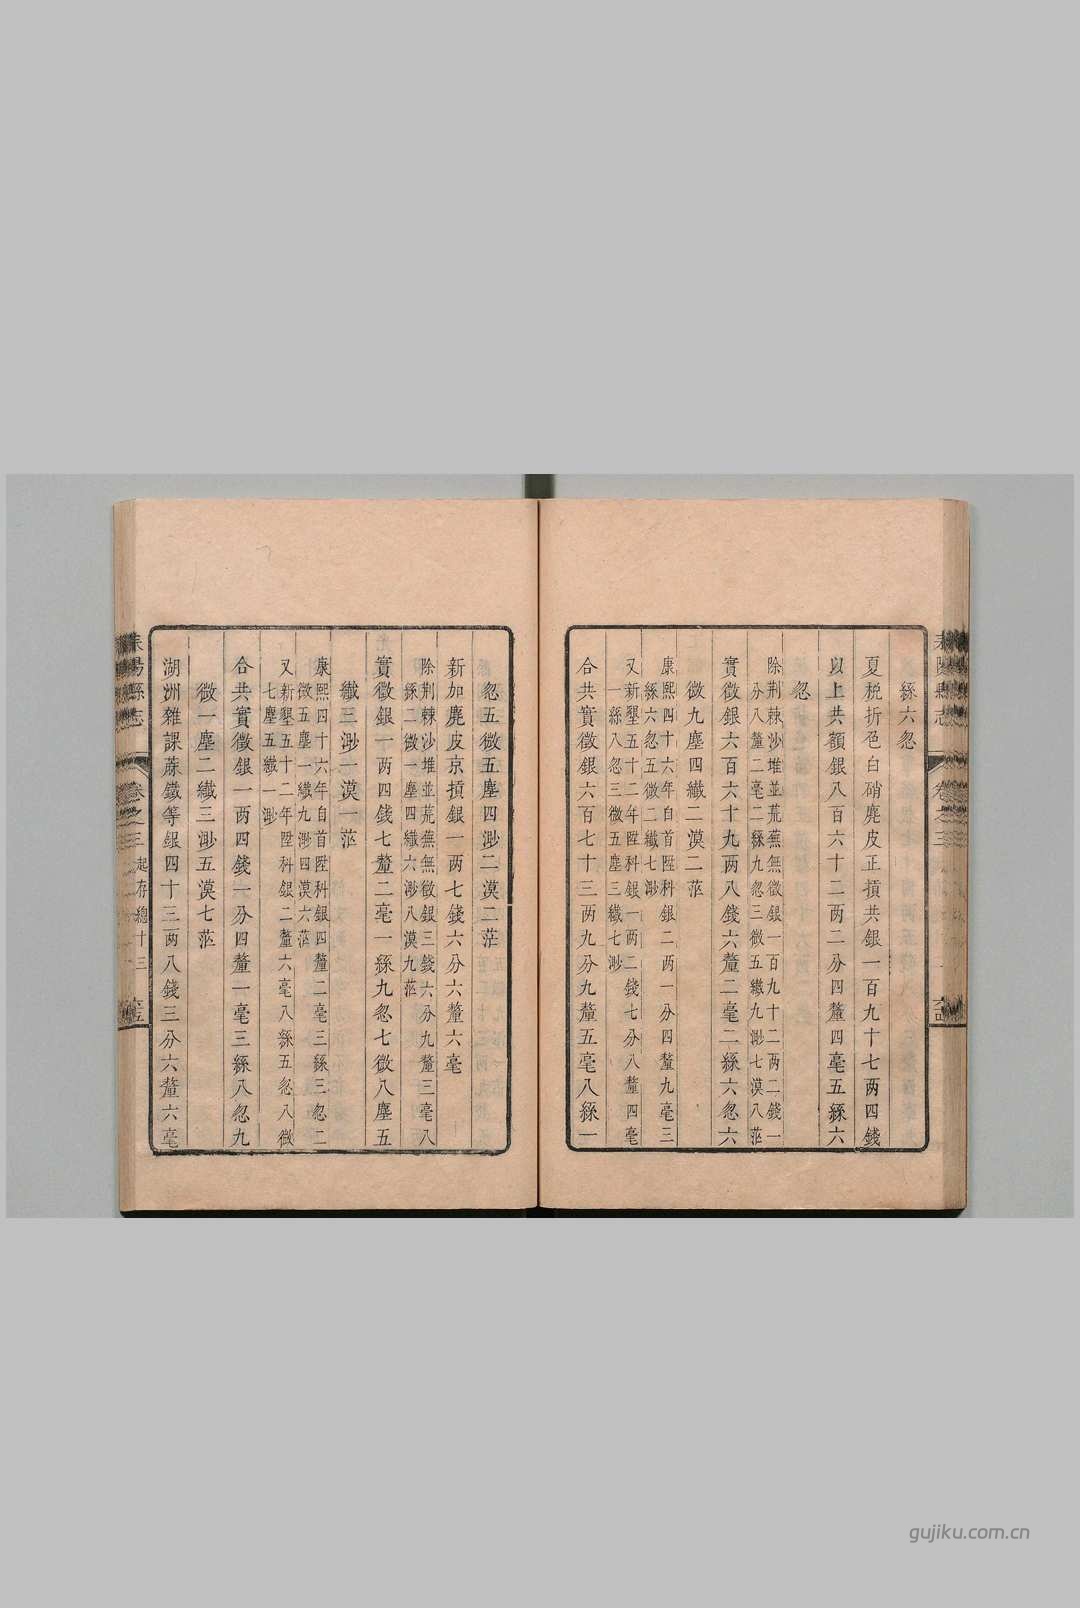 絲六忽
夏稅折色白硝麂皮正損共銀一百九十七两四錢
以上共額銀八百六十二两二分四釐四毫五絲六
忽
除荆棘沙堆並荒蕪無徵銀一百九十二两二錢一
分八釐二毫二絲九忽三微五纖九渺七漠八茫
實徵銀六百六十九两八錢六釐二毫二絲六忽六
微九塵四纖二漠二茫
康熙四十六年自首陞科銀二两一分四釐九毫三
絲六忽五微二纖七渺
又新墾五十二年陞科銀一两二錢七分八釐四毫
一絲八忽三微五塵三纖七渺
合共實徵銀六百七十三两九分九釐五毫八絲一
忽五微五塵四渺二漠二茫
新加麂皮京損銀一两七錢六分六釐六毫
除荆棘沙堆並荒蕪無徵銀三錢六分九釐三毫八
絲二微一塵四纖六渺八漠九茫
實徵銀一两四錢七釐二毫一絲九忽七微八塵五
纖三渺一漠一茫
康熙四十六年自首陞科銀四釐二毫三絲三忽二
微五塵一纖九渺四漠六茫
又新墾五十二年陞科銀二釐六毫八絲五忽八微
七塵五纖一渺
合共實徵銀一两四錢一分四釐一毫三絲八忽九
微一塵二纖三渺五漠七茫
湖洲雜課蔴鐵等銀四十三两八錢三分六釐六毫
耒陽縣志 卷之三 起存總十三
gujiku.com.cn